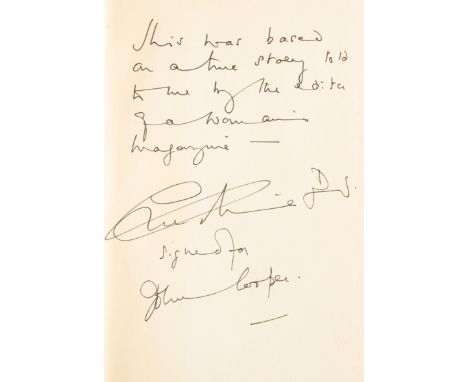 This was based
on a true story told
to me by the editor
of a Woman's
Magazine —
signed for
John Cooper.